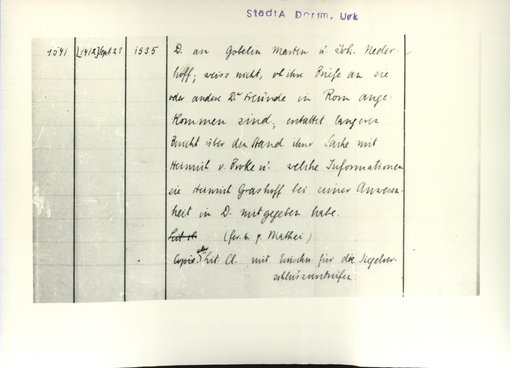 StadtA Dortm. Urk
1541 [1412] Sept 21 1535 D. an Gobelin Marten u. Joh. Neder-
hoff; weiss nicht, ob ihre Briefe an sie
oder andere Dr Freunde in Rom ange-
kommen sind; erstattet längeren
Bericht über den Stand ihrer Sache mit
Heinrich v. Broke u. welche Informationen
sie Heinrich Grashoff bei einer Anwesen-
heit in D. mitgegeben habe.
(fer. p. Mathei)
Copie lit Cl. mit Einschn für die Siegelver-
schlussstreifen.